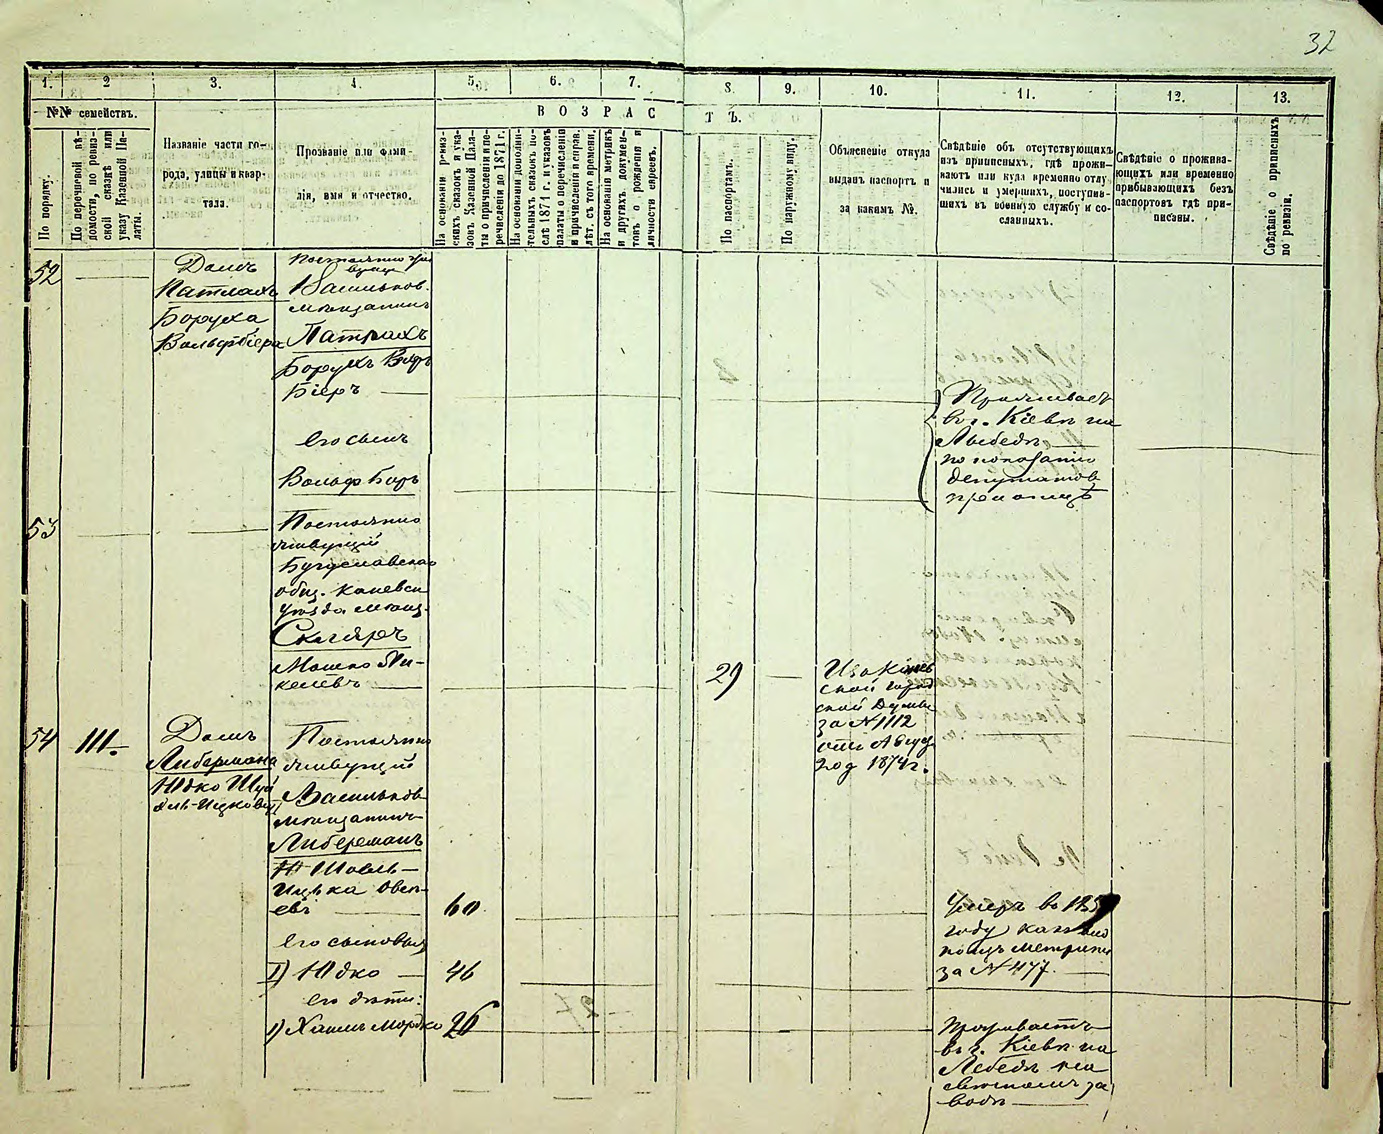 32
1. 2 3. 4. 5. 6. 7. 8. 9. 10. 11. 12. 13.
№№ семействъ.
ВОЗРАСТЪ.
По порядку.
По перечневой вѣ-
домости, по ревиз-
ской сказкѣ или
указу Казенной Па-
латы.
Названіе части го-
рода, улицы и квар-
тала.
Прозваніе или фами-
лія, имя и отчество.
На основаніи ревиз-
скихъ сказокъ и ука-
зовъ Казенной Пала-
ты о причисленіи и пе-
речисленіи до 1871 г.
На основаніи дополни-
тельныхъ сказокъ по-
слѣ 1871 г. и указовъ
палаты о перечисленіи
и причисленіи и справ.
лѣт. съ того времени.
На основаніи метрикъ
и другихъ докумен-
товъ о рожденіи и
личности евреевъ.
По паспортамъ.
По наружному виду.
Объясненіе откуда
выданъ паспортъ и
за какимъ №.
Свѣдѣніе объ отсутствующихъ
изъ приписныхъ, гдѣ прожи-
ваютъ или куда временно отлу
чились и умершихъ, поступив-
шихъ въ военную службу и со-
сланныхъ.
Свѣдѣніе о прожива-
ющихъ или временно
прибывающихъ безъ
паспортовъ гдѣ при-
писаны.
Свѣдѣніе о приписныхъ
по ревизіи.
52
Домъ
Патлахъ
Боруха
Вольфбіера
Постоянно
Васильков
мѣщанинъ
Патлахъ
Борухъ Вольфъ
Біеръ
его сынъ
Вольф Боръ
Проживаетъ
въ г. Кіевѣ на
Лыбедѣ
по показанію
депутатов
53
Постоянно
живущій
Богуславскаго
общ. Каневск
уѣзда мѣщ.
Скляръ
Мошко Ми-
келевъ
29
Изъ Канев
ской город
ской Думы
за № 1112
отъ Август
год 1874 г.
54
111.
Домъ
Либермана
Юдко Шуй
Постоянно
живущій
Васильков
мѣщанинъ
Либерманъ
Шоель-
Ицька Овсѣ-
евъ
60
Умеръ въ
году
метрики
за № 477.
его сыновья
1) Юдко
46
его дѣти:
1) Хаимъ Мордко
26
Проживаетъ
въ г. Кіевѣ на
Лебедѣ на
свѣчномъ за
водѣ